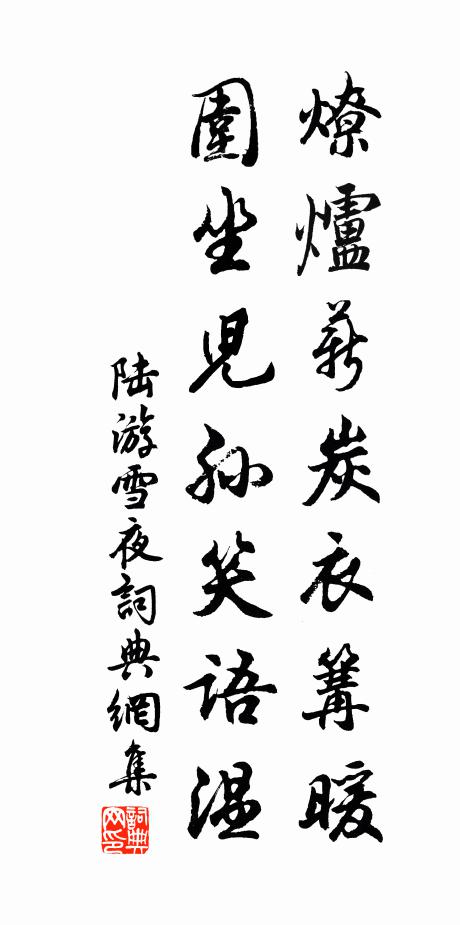 燎爐薪炭衣篝暖
圍坐兒孫笑語溫
陆游雪夜詞典網集
詞典
网印